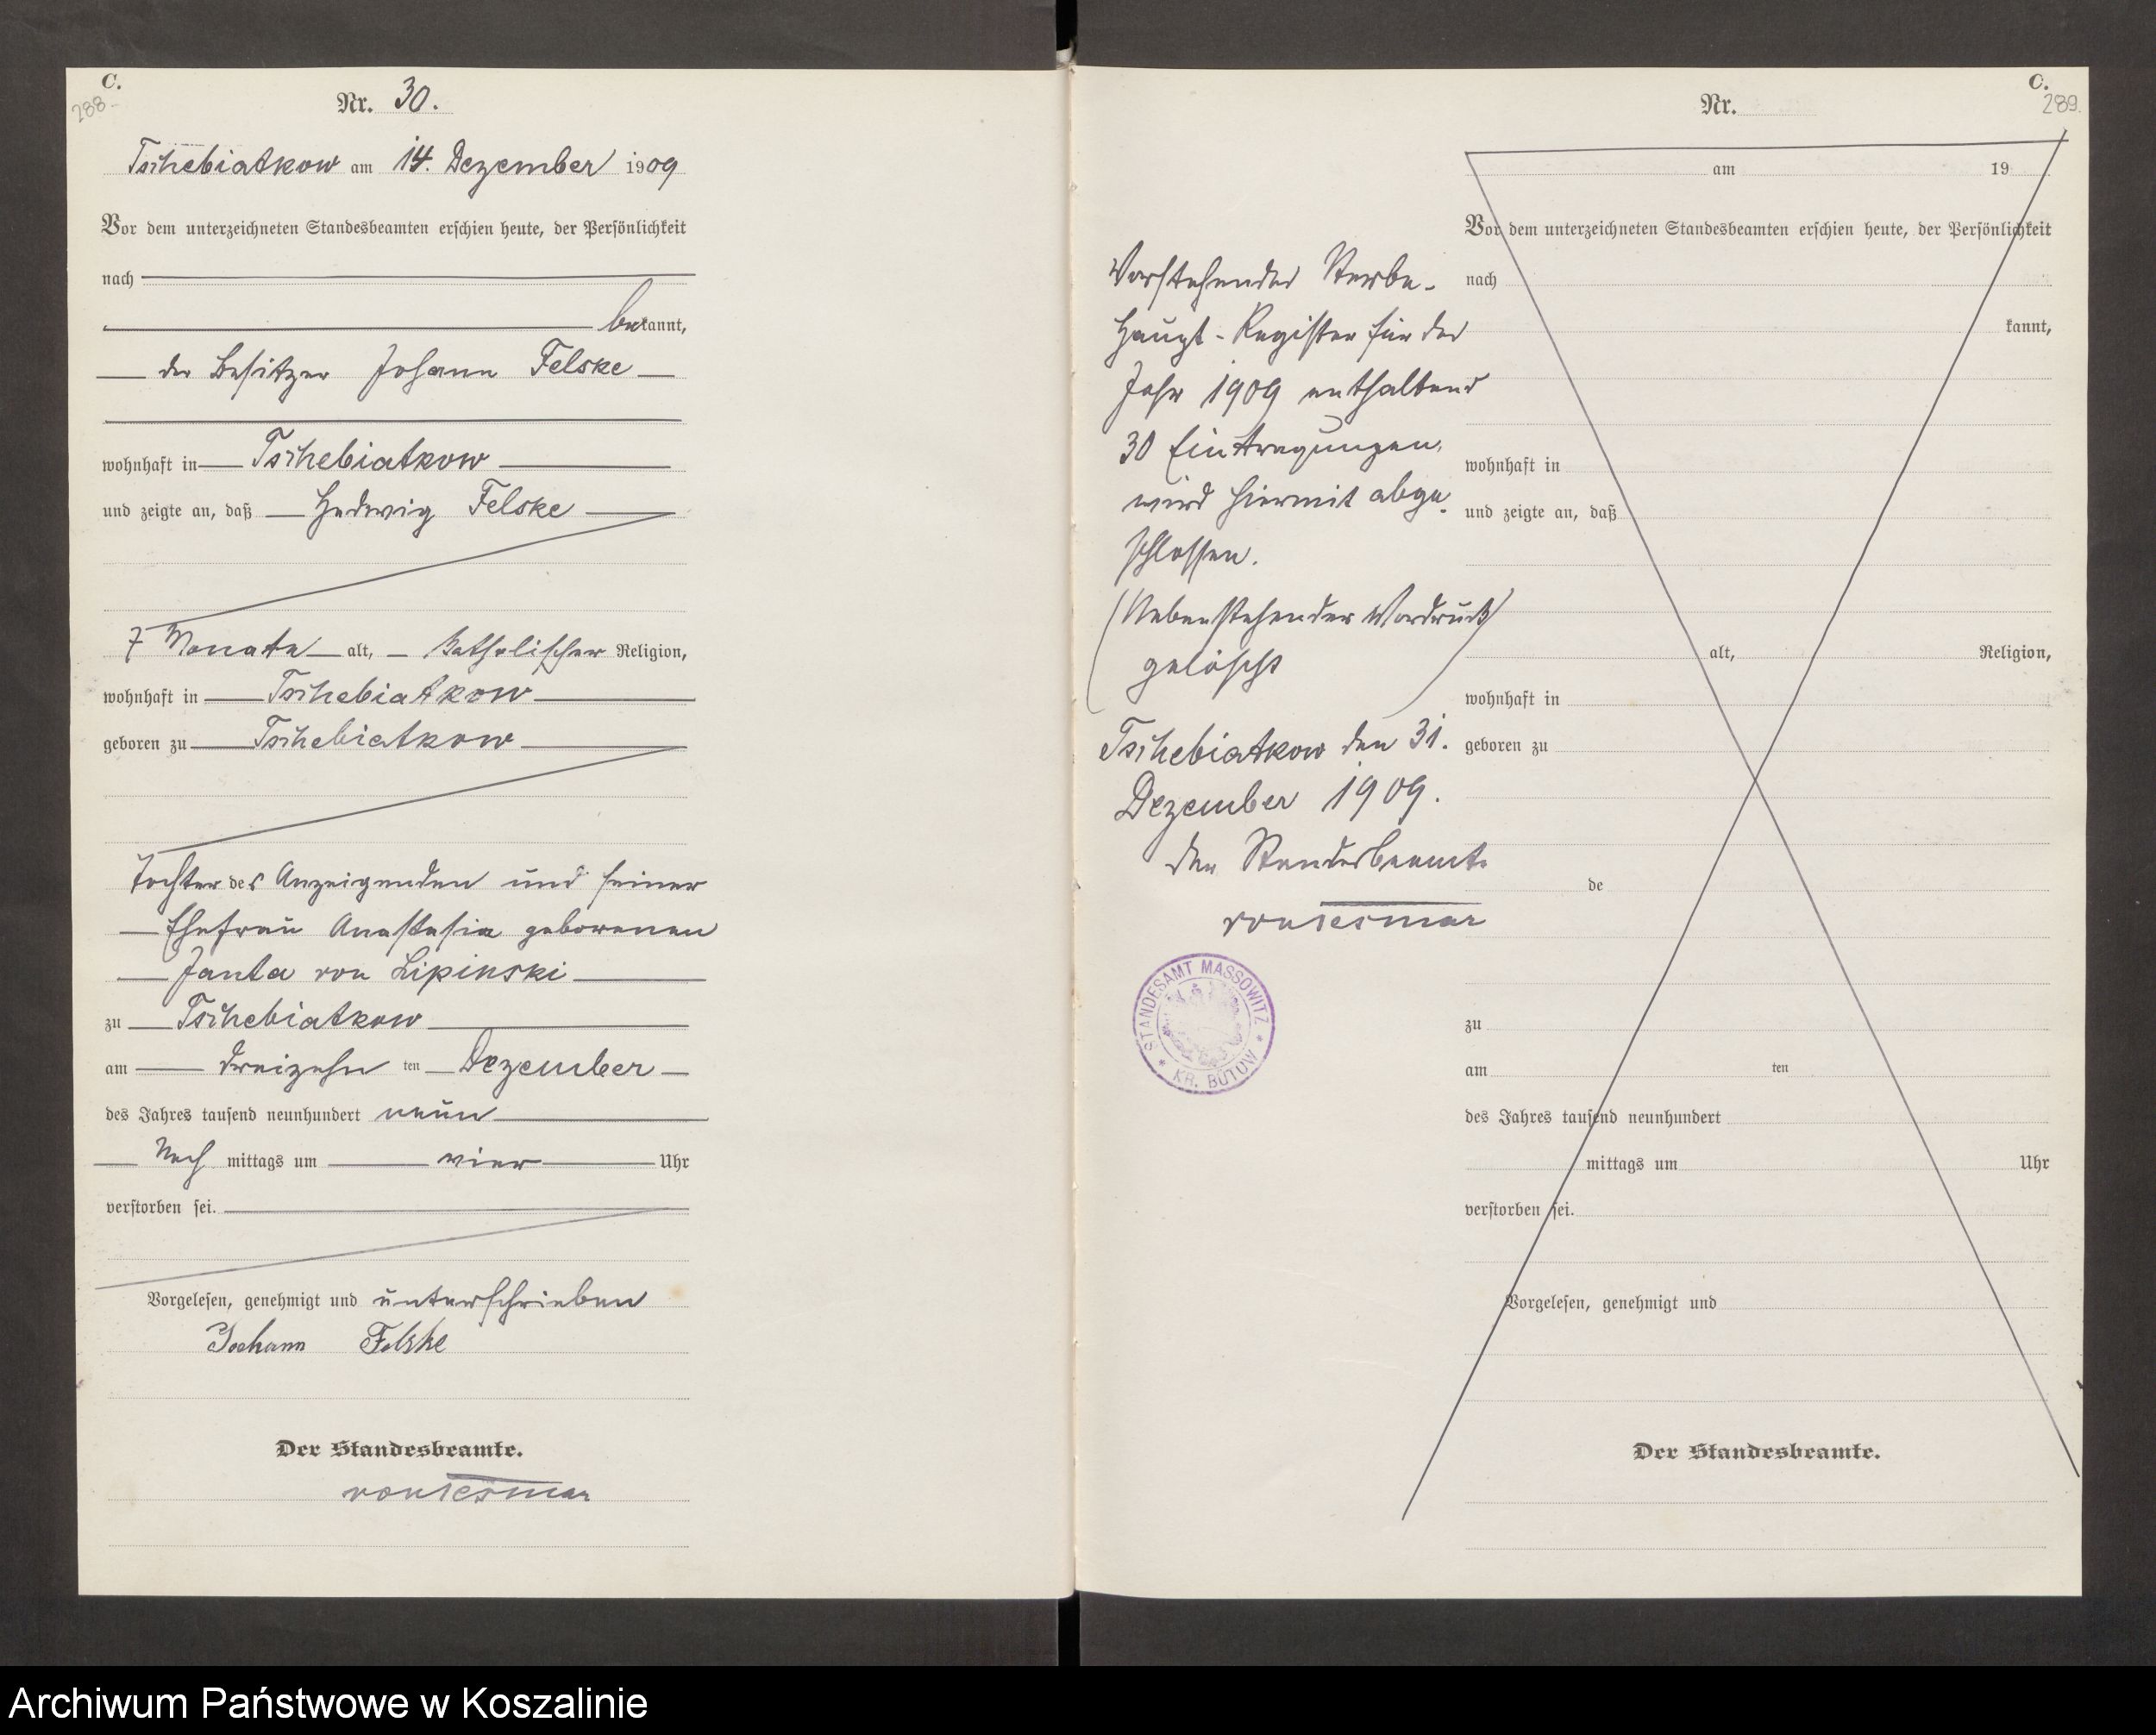 C.
288.
Nr. 30.
Tschebiatkow am 14. Dezember 1909
Vor dem unterzeichneten Standesbeamten erschien heute, der Persönlichkeit
nach
bekannt,
der Besitzer Johann Felske
wohnhaft in Tschebiatkow
und zeigte an, daß Hedwig Felske
7 Monate alt, katholischer Religion,
wohnhaft in Tschebiatkow
geboren zu Tschebiatkow
Tochter des Anzeigenden und seiner
Ehefrau Anastasia geborenen
Janta von Lipinski
zu Tschebiatkow
am dreizehn ten Dezember
des Jahres tausend neunhundert neun
Nach mittags um vier Uhr
verstorben sei.
Vorgelesen, genehmigt und unterschrieben
Johann Felske
Der Standesbeamte.
C.
289.
Nr.
am 19
Vor dem unterzeichneten Standesbeamten erschien heute, der Persönlichkeit
nach
kannt,
wohnhaft in
und zeigte an, daß
alt, Religion,
wohnhaft in
geboren zu
de
zu
am ten
des Jahres tausend neunhundert
mittags um Uhr
verstorben sei.
Vorgelesen, genehmigt und
Der Standesbeamte.
Vorstehendes Sterbe-
Haupt-Register für das
Jahr 1909 enthaltend
30 Eintragungen,
wird hiermit abge-
schlossen.
(Nebenstehender Vordruck
gelöscht)
Tschebiatkow den 31.
Dezember 1909.
Der Standesbeamte
STANDESAMT MASSOWITZ
* KR. BÜTOW *
Archiwum Państwowe w Koszalinie